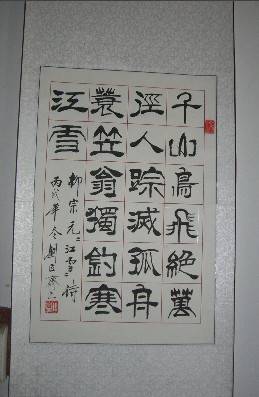 千山鳥飛絕萬
徑人踪滅孤舟
蓑笠翁獨釣寒
江雪
柳宗元"江雪"詩
丙戌年冬劉